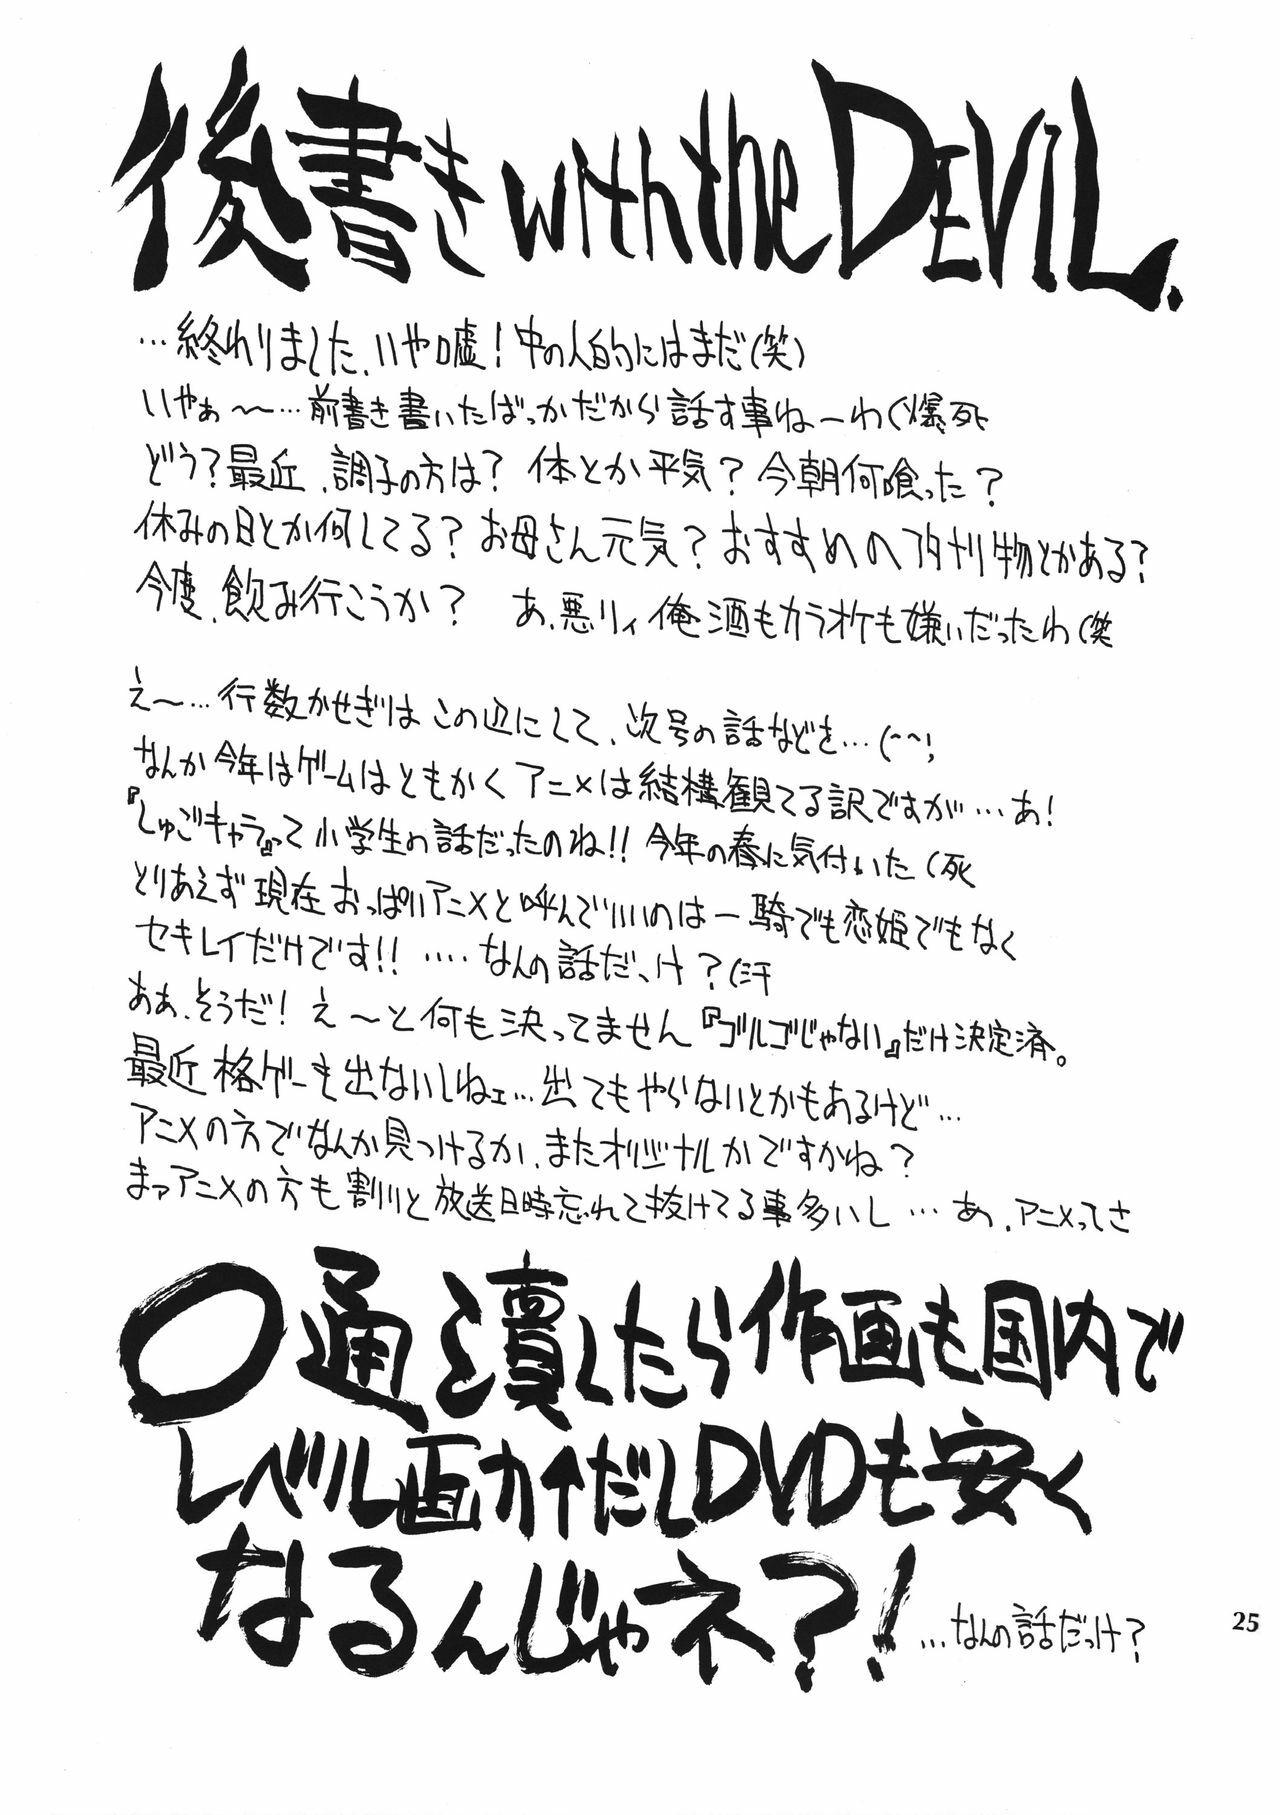 後書き with the DEVIL.
…終わりました、いや嘘！中の人的にはまだ（笑）
いやぁ～…前書き書いたばっかだから話す事ねーわ（爆死
どう？最近、調子の方は？体とか平気？今朝何喰った？
休みの日とか何してる？お母さん元気？おすすめのフタナリ物とかある？
今度、飲み行こうか？　あ、悪リィ俺酒もカラオケも嫌いだったわ（笑
え～…行数かせぎはこの辺にして、次号の話などを…(^^;
なんか今年はゲームはともかくアニメは結構観てる訳ですが…あ！
『しゅごキャラ』って小学生の話だったのね！！今年の春に気付いた（死
とりあえず現在おっぱいアニメと呼んでいいのは一騎でも恋姫でもなく
セキレイだけです！！‥‥なんの話だっけ？（汗
ああ、そうだ！え～と何も決ってません『ゴルゴじゃない』だけ決定済。
最近格ゲーも出ないしねェ…出てもやらないとかもあるけど…
アニメの方でなんか見つけるか、またオリジナルかですかね？
まァアニメの方も割りと放送日時忘れて抜けてる事多いし…あ、アニメってさ
〇通と潰したら作画も国内で
レベル画力↑だしDVDも安く
なるんじゃネ？！
…なんの話だっけ？
25